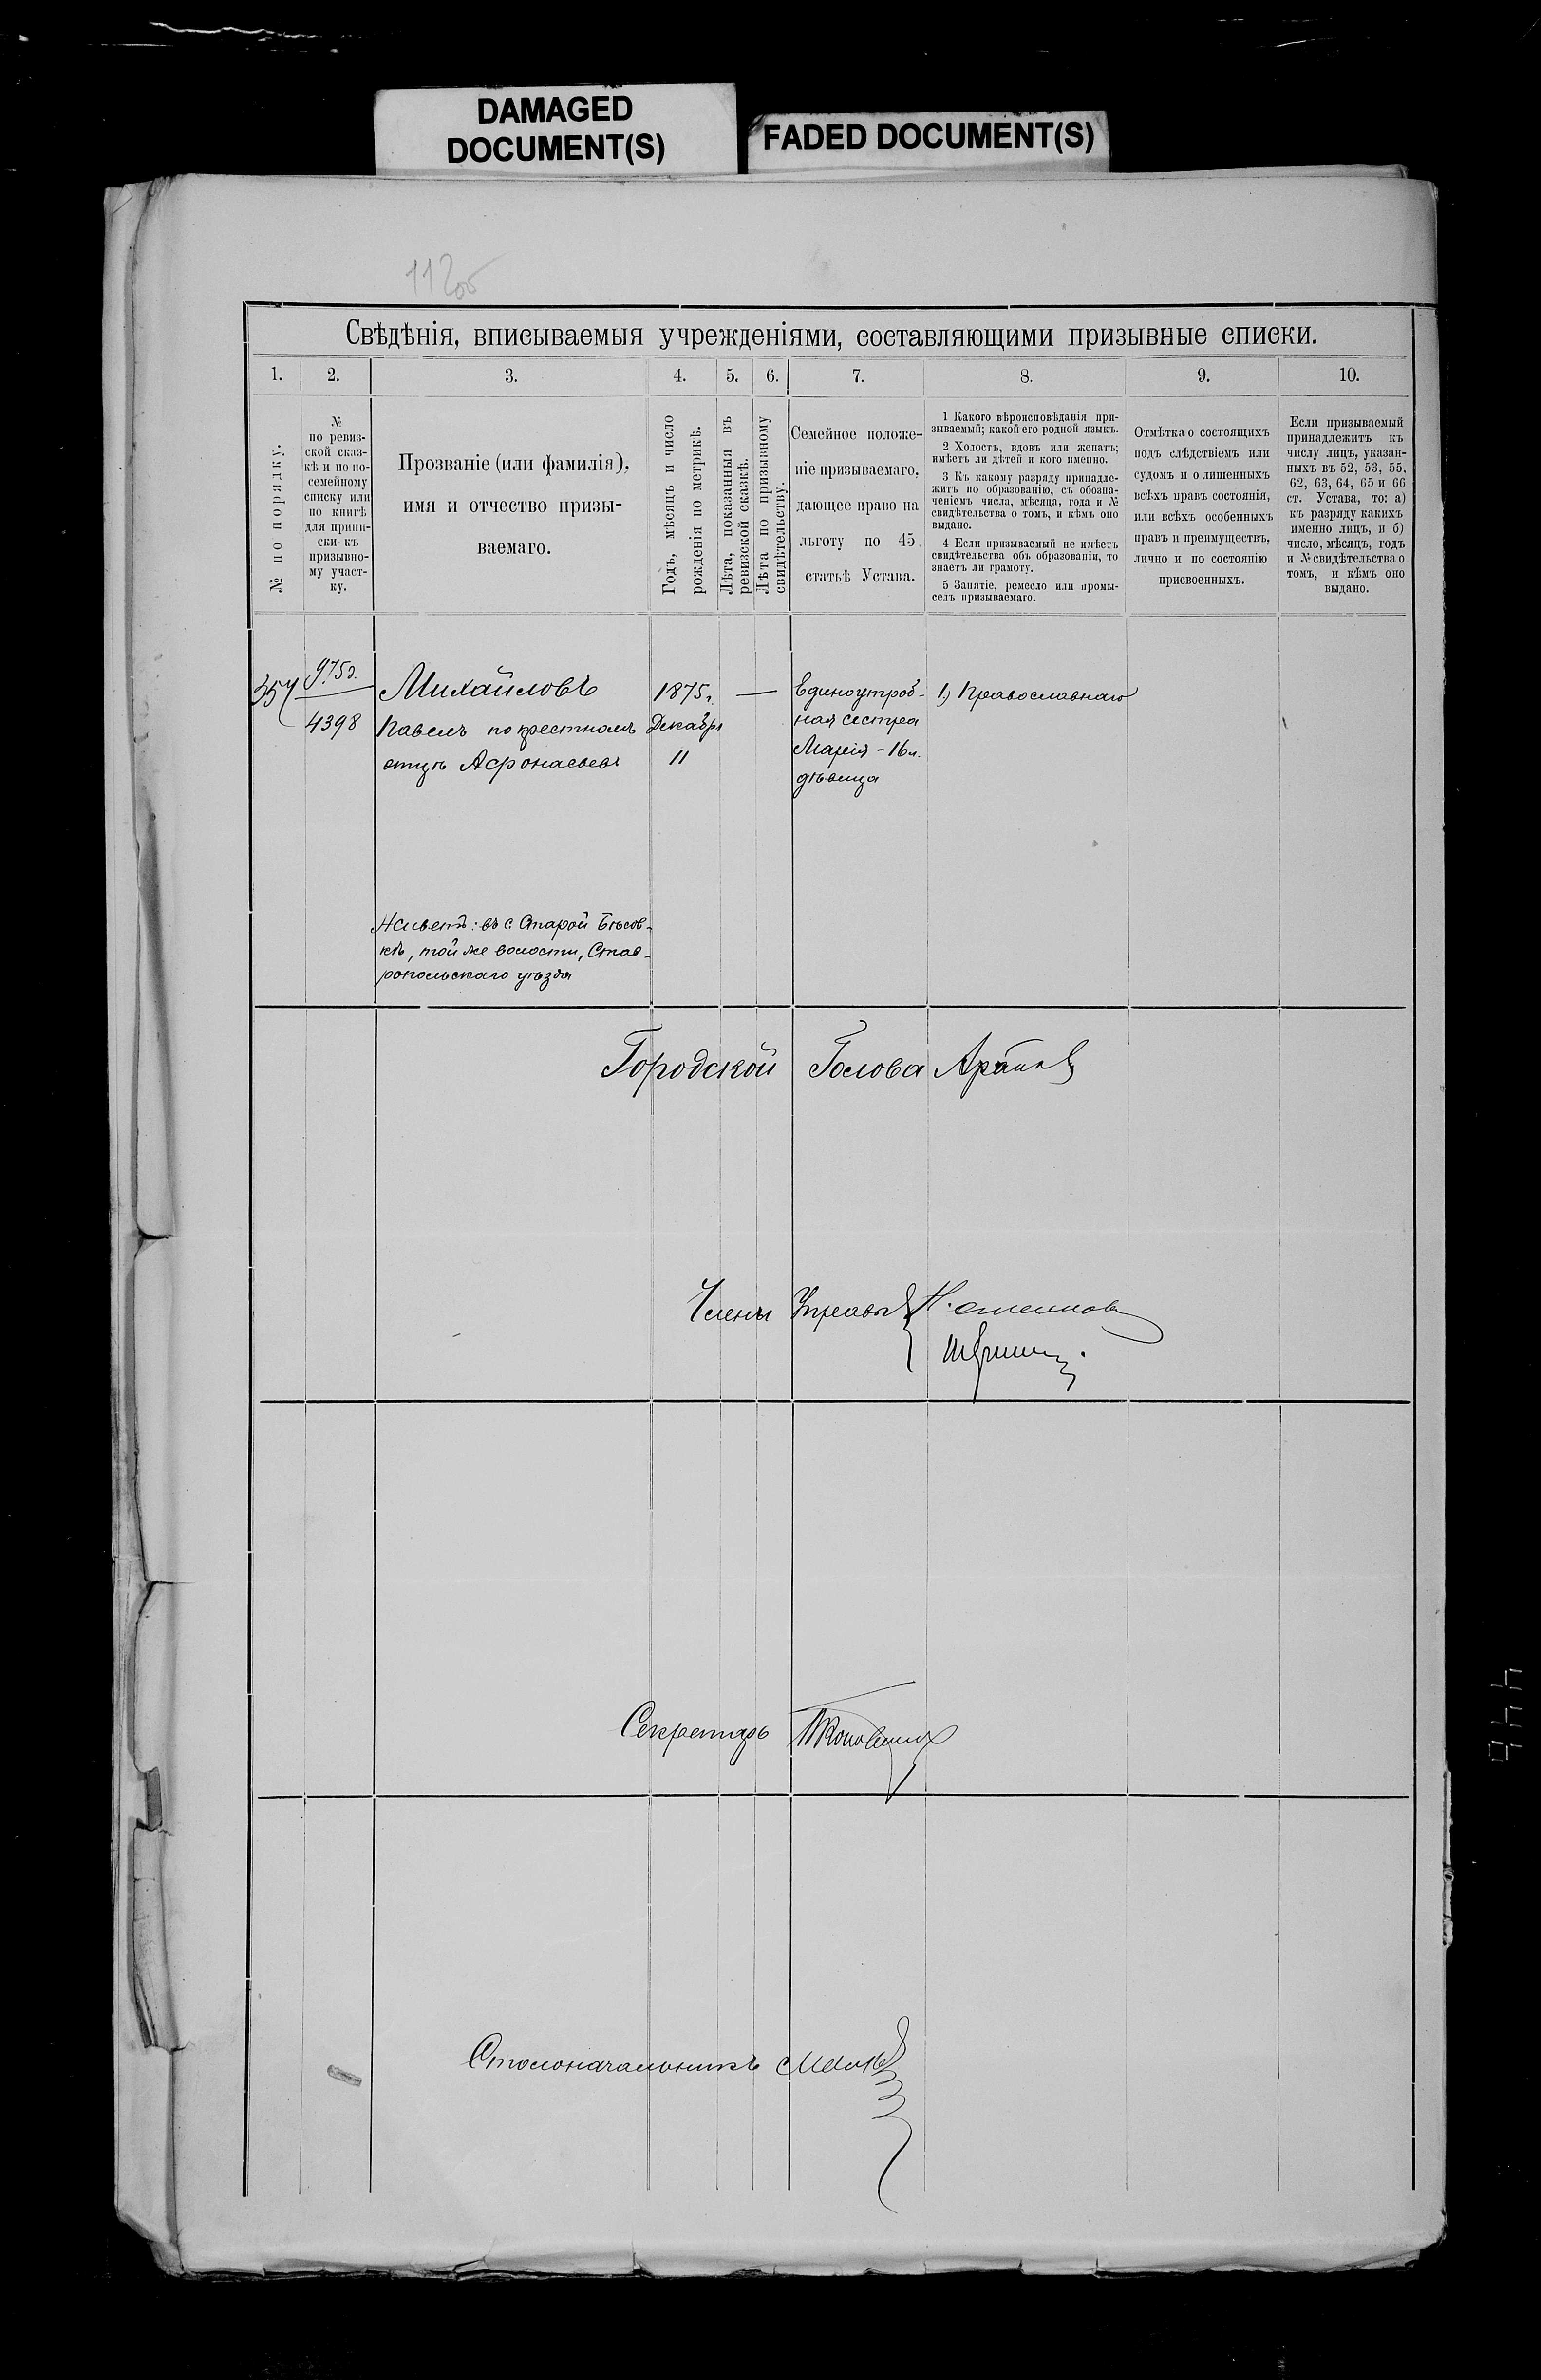 DAMAGED
DOCUMENT(S)
FADED DOCUMENT(S)
112об
Свѣдѣнія, вписываемыя учрежденіями, составляющими призывные списки.
1.
2.
3.
4.
5.
6.
7.
8.
9.
10.
№ по порядку.
№
по ревиз-
ской сказ-
кѣ и по по-
семейному
списку или
по книгѣ
для припи-
ски къ
призывно-
му участ-
ку.
Прозваніе (или фамилія),
имя и отчество призы-
ваемаго.
Годъ, мѣсяцъ и число
рожденія по метрикѣ.
Лѣта, показанныя въ
ревизской сказкѣ.
Лѣта по призывному
свидѣтельству.
Семейное положе-
ніе призываемаго,
дающее право на
льготу по 45
статьѣ Устава.
1 Какого вѣроисповѣданія при-
зываемый; какой его родной языкъ.
2 Холостъ, вдовъ или женатъ;
имѣетъ ли дѣтей и кого именно.
3 Къ какому разряду принадле-
житъ по образованію, съ обозна-
ченіемъ числа, мѣсяца, года и №
свидѣтельства о томъ, и кѣмъ оно
выдано.
4 Если призываемый не имѣетъ
свидѣтельства объ образованіи, то
знаетъ ли грамоту.
5 Занятіе, ремесло или промы-
селъ призываемаго.
Отмѣтка о состоящихъ
подъ слѣдствіемъ или
судомъ и о лишенныхъ
всѣхъ правъ состоянія,
или всѣхъ особенныхъ
правъ и преимуществъ,
лично и по состоянію
присвоенныхъ.
Если призываемый
принадлежитъ къ
числу лицъ, указан-
ныхъ въ 52, 53, 55,
62, 63, 64, 65 и 66
ст. Устава, то: а)
къ разряду какихъ
именно лицъ, и б)
число, мѣсяцъ, годъ
и № свидѣтельства о
томъ, и кѣмъ оно
выдано.
357
975
4398
Михайловъ
Павелъ по крестномъ
отцѣ Афонасьевъ
1875г.
Декабря
11
—
Единоутроб-
ная сестра
Марія - 16 л.
дѣвица
1) Православнаго
Живетъ: въ с. Старой Бѣсов-
кѣ, той же волости, Став-
ропольскаго уѣзда
Городской Голова
Члены Управы
Секретарь
Столоначальникъ